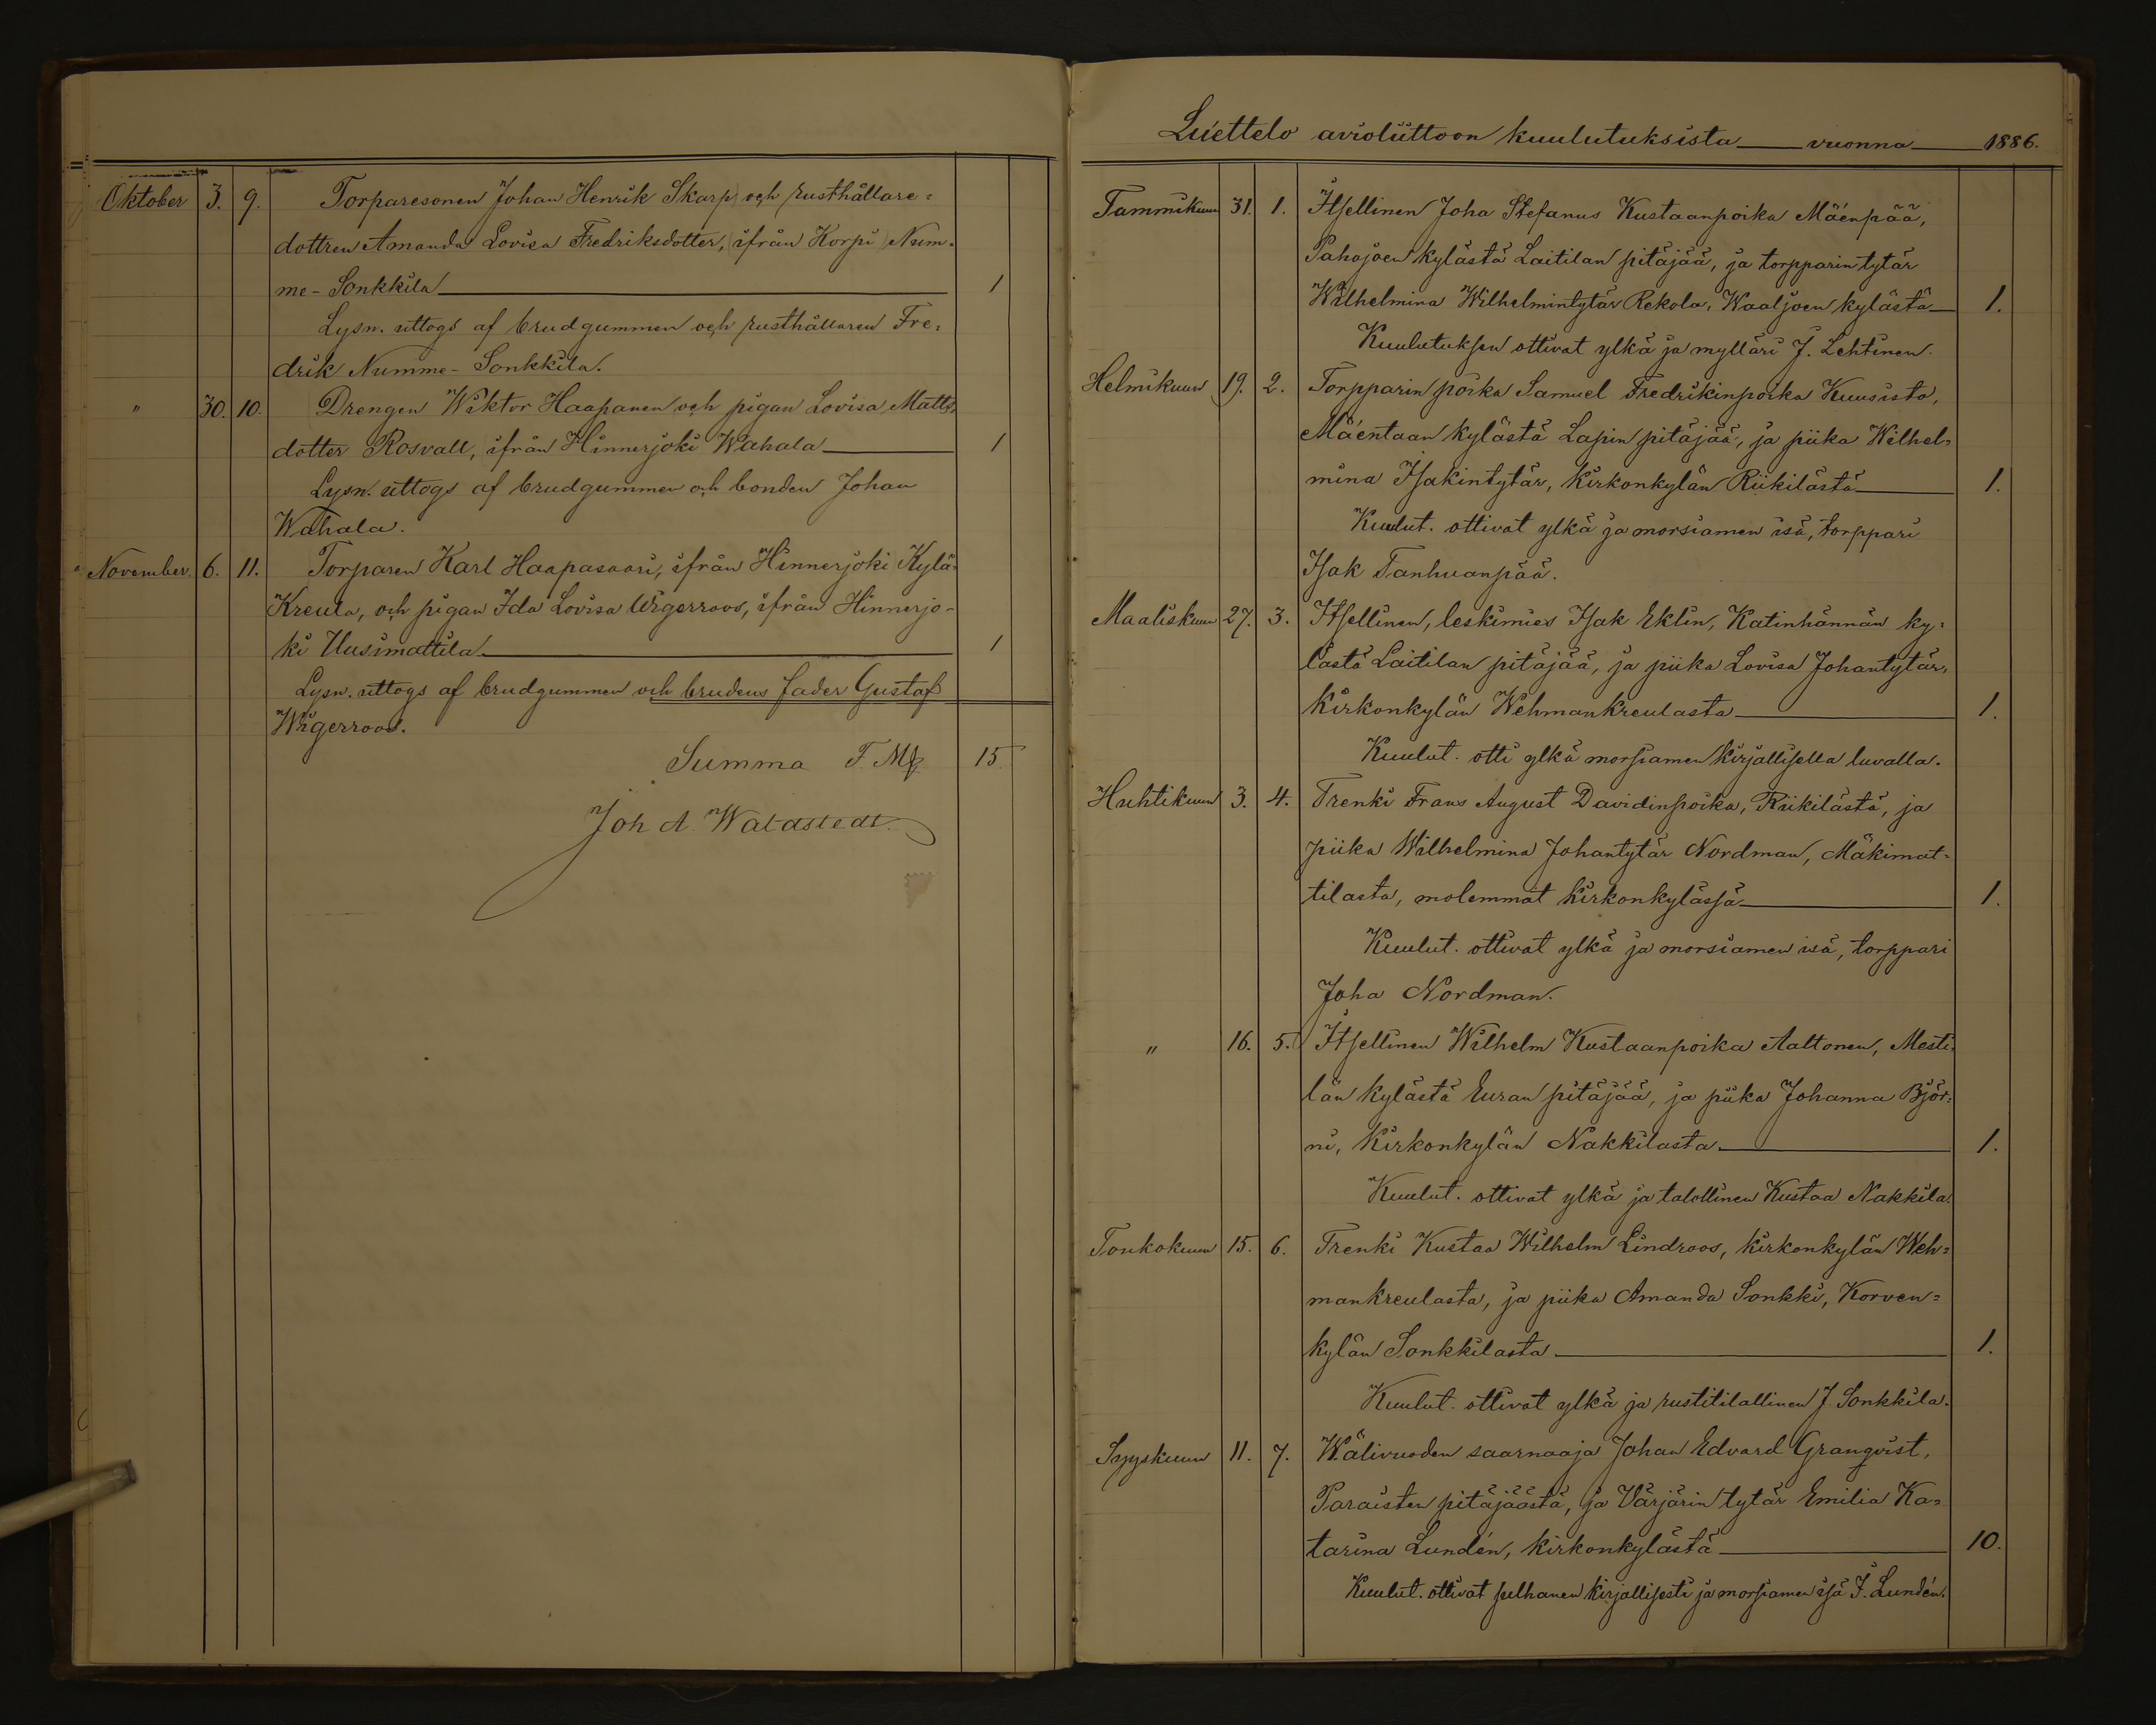 Oktober 3. 9. Torparesonen Johan Henrik Skarp och rusthållare=
dottren Amanda Lovisa Fredriksdotter, ifrån Korpi Num-
me-Sonkkila 1
Lysn. uttogs af brudgummen och rusthållaren Fre=
drik Numme-Sonkkila.
" 30. 10. Drengen Wiktor Haapanen och pigan Lovisa Matts=
dotter Rosvall, ifrån Hinnerjoki Wahala 1
Lysn. uttogs af brudgummen och bonden Johan
Wahala.
November. 6. 11. Torparen Karl Haapasaari, ifrån Hinnerjoki Kylä-
Kreula, och pigan Ida Lovisa Wigerroos, ifrån Hinnerjo-
ki Uusimattila. 1
Lysn. uttogs af brudgummen och brudens fader Gustaf
Wigerroos.
Summa F. Mk 15.
Joh A. Waldstedt.
Luettelo avioliittoon kuulutuksista vuonna 1886.
Tammikuun 31. 1. Itsellinen Joha Stefanus Kustaanpoika Mäenpää,
Pahojoen kylästä Laitilan pitäjää, ja torpparin tytär
Wilhelmina Wilhelmintytär Rekola, Waaljoen kylästä 1.
Kuulutuksen ottivat ylkä ja mylläri J. Lehtinen.
Helmikuun 19. 2. Torpparin poika Samuel Fredrikinpoika Kuusisto,
Mäentaan kylästä Lapin pitäjää, ja piika Wilhel=
mina Isakintytär, Kirkonkylän Riikilästä 1.
Kuulut. ottivat ylkä ja morsiamen isä, torppari
Isak Tanhuanpää.
Maaliskuun 27. 3. Itsellinen, leskimies Isak Eklin, Katinhännän ky=
lästä Laitilan pitäjää, ja piika Lovisa Johantytär,
Kirkonkylän Wehmankreulasta 1.
Kuulut. otti ylkä morsiamen kirjallisella luvalla.
Huhtikuun 3. 4. Trenki Frans August Davidinpoika, Riikilästä, ja
piika Wilhelmina Johantytär Nordman, Mäkimat=
tilasta, molemmat kirkonkylässä 1.
Kuulut. ottivat ylkä ja morsiamen isä, torppari
Joha Nordman.
" 16. 5. Itsellinen Wilhelm Kustaanpoika Aaltonen, Mesti=
län kylästä Euran pitäjää, ja piika Johanna Björ=
ni, Kirkonkylän Nakkilasta. 1.
Kuulut. ottivat ylkä ja talollinen Kustaa Nakkila.
Toukokuun 15. 6. Trenki Kustaa Wilhelm Lindroos, kirkonkylän Weh=
mankreulasta, ja piika Amanda Sonkki, Korven=
kylän Sonkkilasta. 1.
Kuulut. ottivat ylkä ja rustitilallinen J. Sonkkila.
Syyskuun 11. 7. Wälivuoden saarnaaja Johan Edvard Granqvist,
Paraisten pitäjäästä, ja Värjärin tytär Emilia Ka=
tarina Lundén, kirkonkylästä 10.
Kuulut. ottivat sulhanen kirjallisesti ja morsiamen isä J. Lundén.